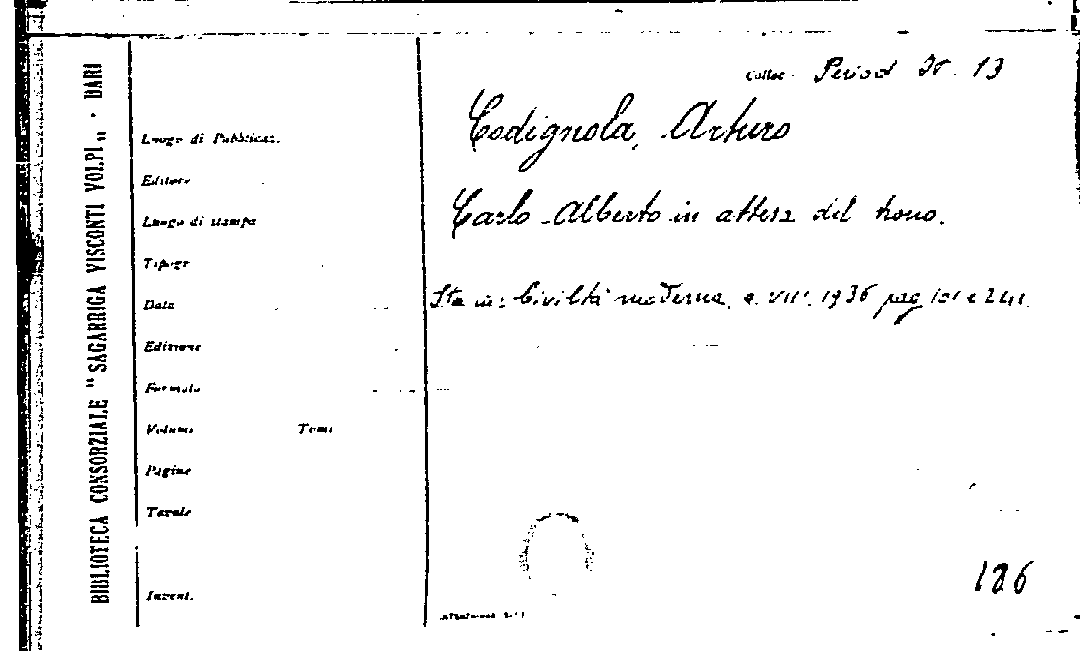 BIBLIOTECA CONSORZIALE "SAGARRIGA VISCONTI VOLPI" - BARI
Colloc. Period IV. 13
Codignola, Arturo
Carlo Alberto in attesa del trono.
Sta in: Civiltà moderna, a. VIIº. 1936 pag 101 e 241
Luogo di Pubblicaz.
Editore
Luogo di stampa
Tipogr
Data
Edizione
Formato
Volumi Tomi
Pagine
Tavole
Invent.
186